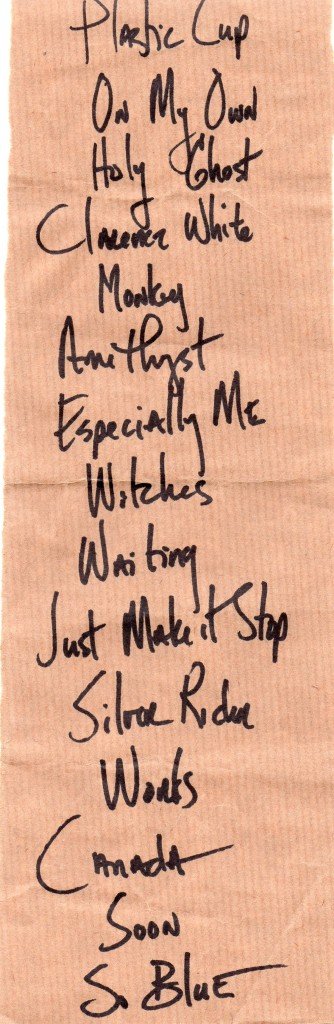 Plastic Cup
On My Own
Holy Ghost
Clarence White
Monkey
Amethyst
Especially Me
Witches
Waiting
Just Make it Stop
Silver Rider
Words
Canada
Soon
So Blue